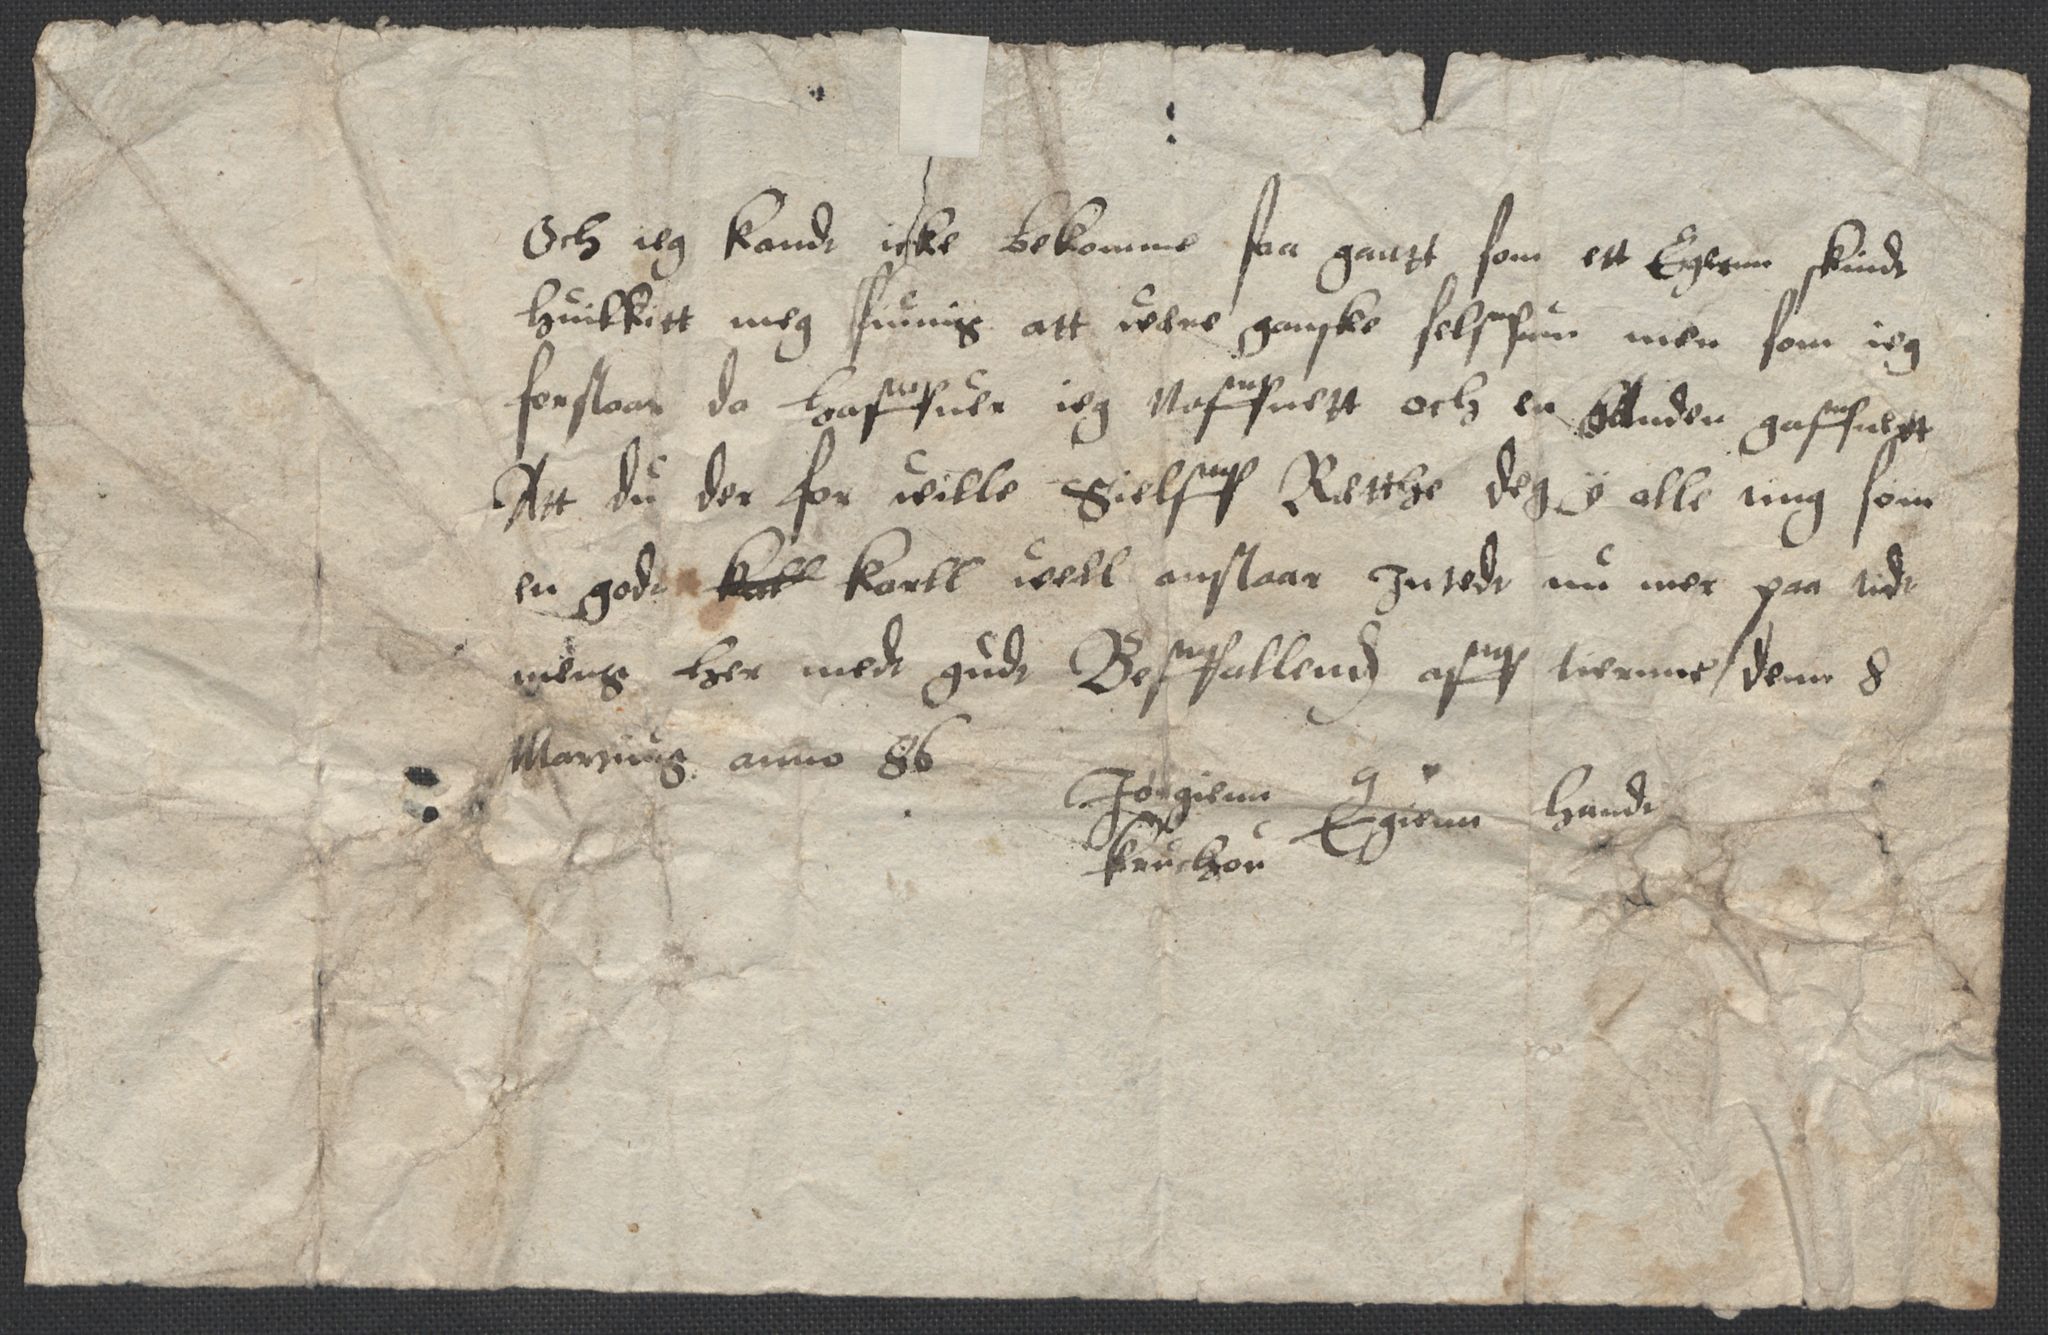 Och ieg kandt icke bekomme saa gantzt som ett Egernn skindt
huilkett meg siunis att were ganske selsom men som ieg
forstaar da haffuer ieg noffuett och en Anden gaffuett
Att du der for wille sielff Retthe deg y alle ting som
en godt karll well anstaar Intedt nu mer paa tidt
mens her medt gudt Beffallendt aff tierrne denn 8
Martius anno 86
Jørgienn Egienn handt
kruchou